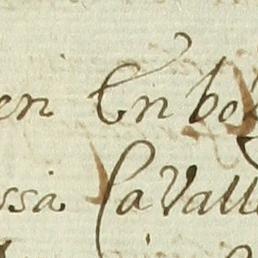 en En be
ssa Cavall